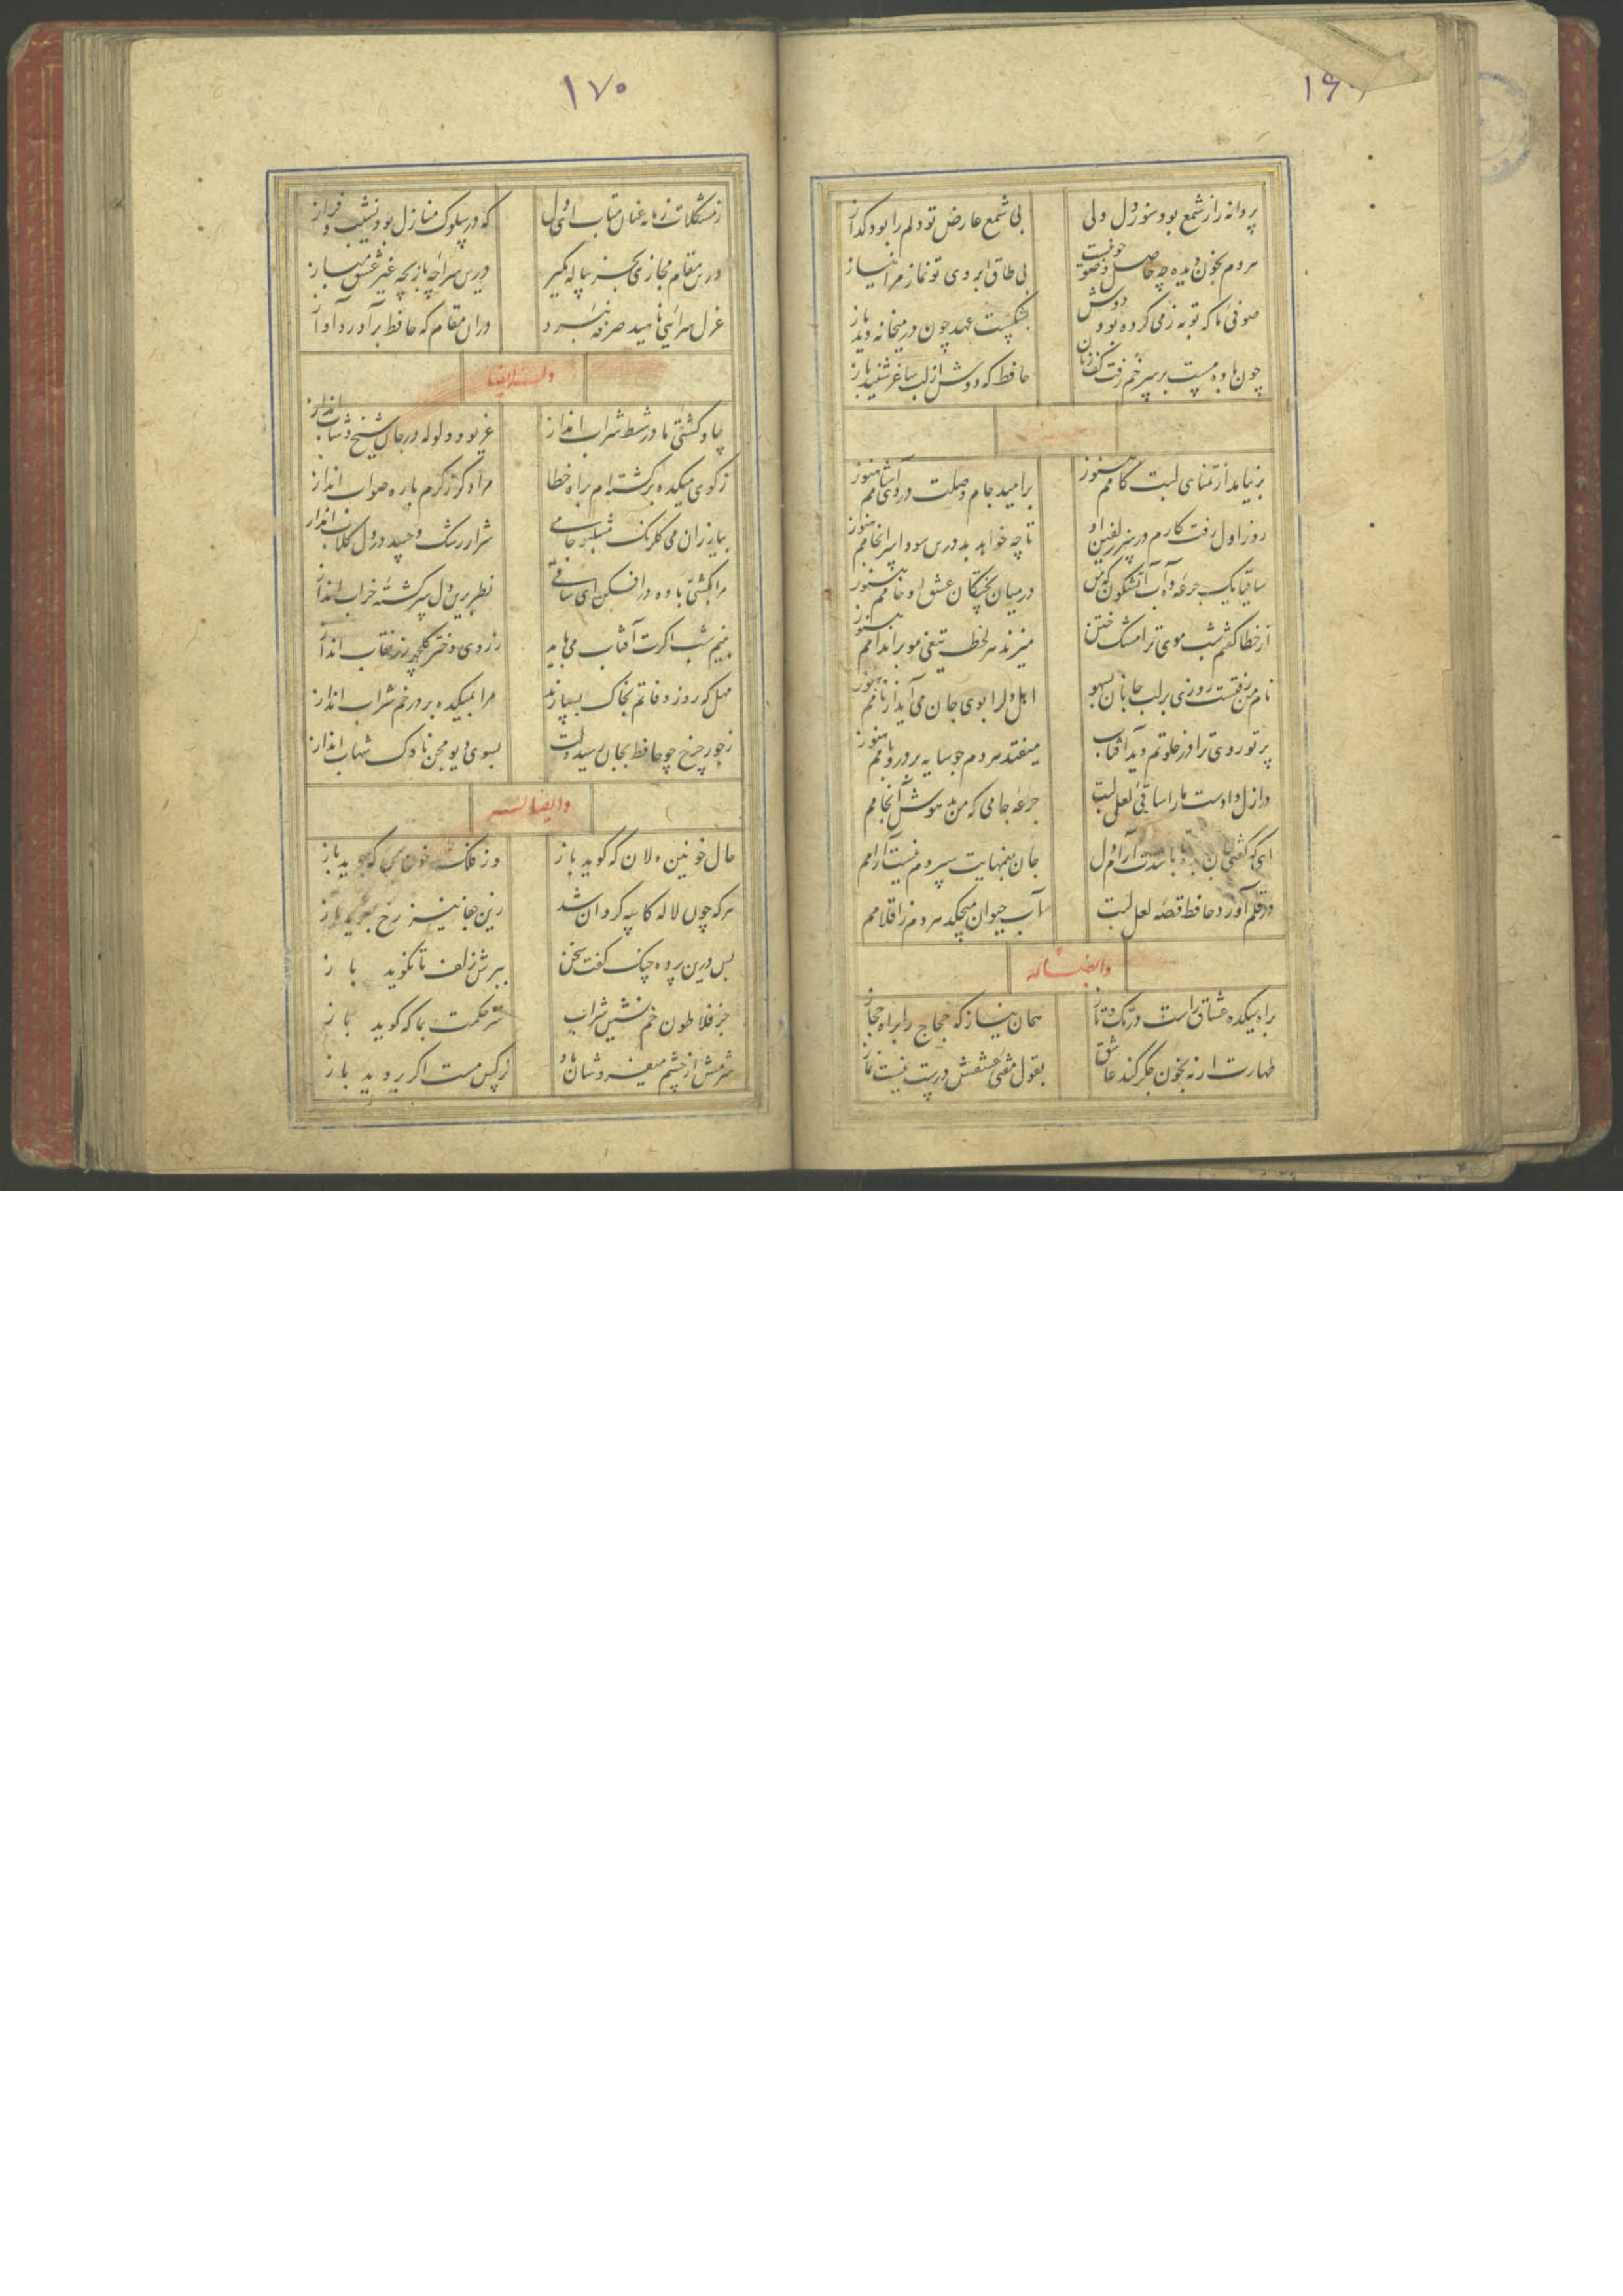 ۱۶
پروانه را ز شمع بود سوز دل ولی بی شمع عارض تو دلم را بود گداز
هردم بخون دیده چه حاصل وضو چو نیست بی طاق ابروی تو نماز مرا نیاز
صوفی ما که توبه ز می کرده بود دوش بشکست عهد چون در میخانه دید باز
چون باده مست بر سر خم رفت کف زنان حافظ که دوش از لب ساغر شنید راز
بر نیامد از تمنای لبت کامم هنوز بر امید جام وصلت دردی آشامم هنوز
روز اول رفت کارم در سر زلفین او تا چه خواهد بد درین سودا سرانجامم هنوز
ساقیا یک جرعه ده آب آتشگون که من در میان پختگان عشق او خامم هنوز
از خطا گفتم شب موی ترا مشک ختن میزند هر لحظه تیغی مو بر اندامم هنوز
نام من رفتست روزی بر لب جانان بسهو اهل دلرا بوی جان می آید از نامم هنوز
پرتو روی ترا در خلوتم دید آفتاب میفتد هردم چو سایه بر در و بامم هنوز
در ازل دادست مارا ساقی لعل لبت جرعه جامی که من مدهوش آنجامم
ای که گفتی جان بده تا باشدت آرام دل جان بغمهایت سپردم نیست آرامم
در قلم آورد حافظ قصه لعل لبت آب حیوان میچکد هردم ز اقلامم
وایضاً له
براه میکده عشاق راست در تک و تاز همان نیاز که حجاج را براه حجاز
طهارت ار نه بخون جگر کند عاشق بقول مفتی عشقش درست نیست نماز
۱۷۰
ز مشکلات زمانه عنان متاب ای دل که در سلوک منازل بود نشیب و فراز
درین مقام مجازی بجز پیاله مگیر درین سراچه بازیچه غیر عشق مباز
غزل سرایی ناهید صرفه نبرد دران مقام که حافظ برآورد آواز
وله ایضا
بیا و کشتی ما در شط شراب انداز غریو و ولوله در جان شیخ و شاب انداز
ز کوی میکده برگشته ام براه خطا مرا دگر ز کرم با ره صواب انداز
بیار زان می گلرنگ مشکبو جامی شرار رشک و حسد در دل گلاب انداز
مرا بکشتی باده در افکن ای ساقی نظر برین دل سرگشته خراب انداز
بنیم شب اگرت آفتاب می باید ز روی دختر گلچهر رز نقاب انداز
مهل که روز وفاتم بخاک بسپارند مرا بمیکده بر در خم شراب انداز
ز جور چرخ چو حافظ بجان رسید دلت بسوی دیو محن ناوک شهاب انداز
وایضا له
حال خونین دلان که گوید باز وز فلک خون جم که جوید باز
هرکه چون لاله کاسه گردان شد زین جفا رخ بخون بشوید باز
بس درین پرده چنگ گفت سخن ببرش زلف تا نگوید باز
جز فلاطون خم نشین شراب سر حکمت بما که گوید باز
شرمش از چشم میفروشان باد نرگس مست اگر بروید باز